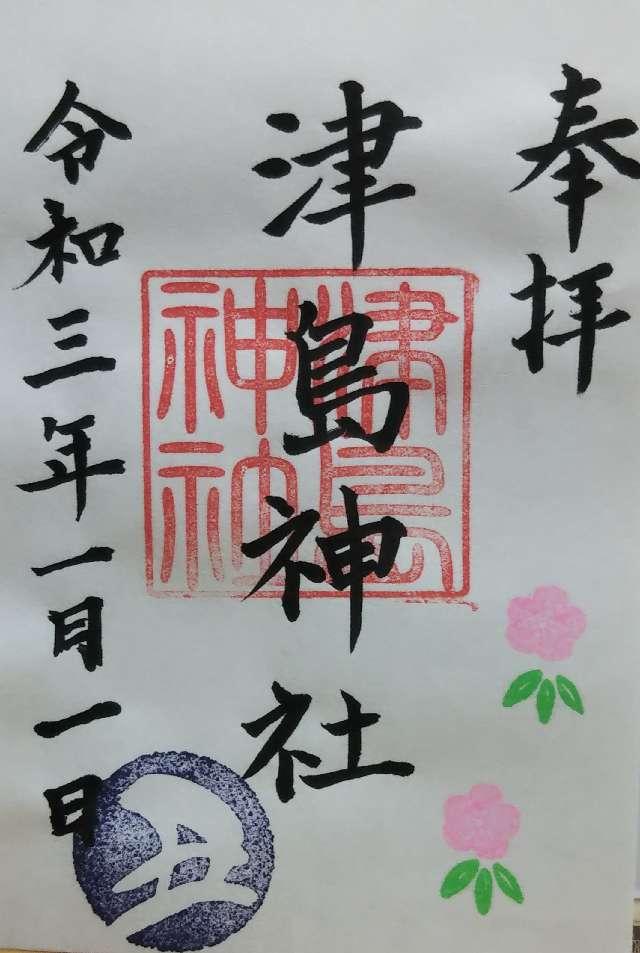 奉拝
津島神社
津島神社
令和三年一月一日
丑